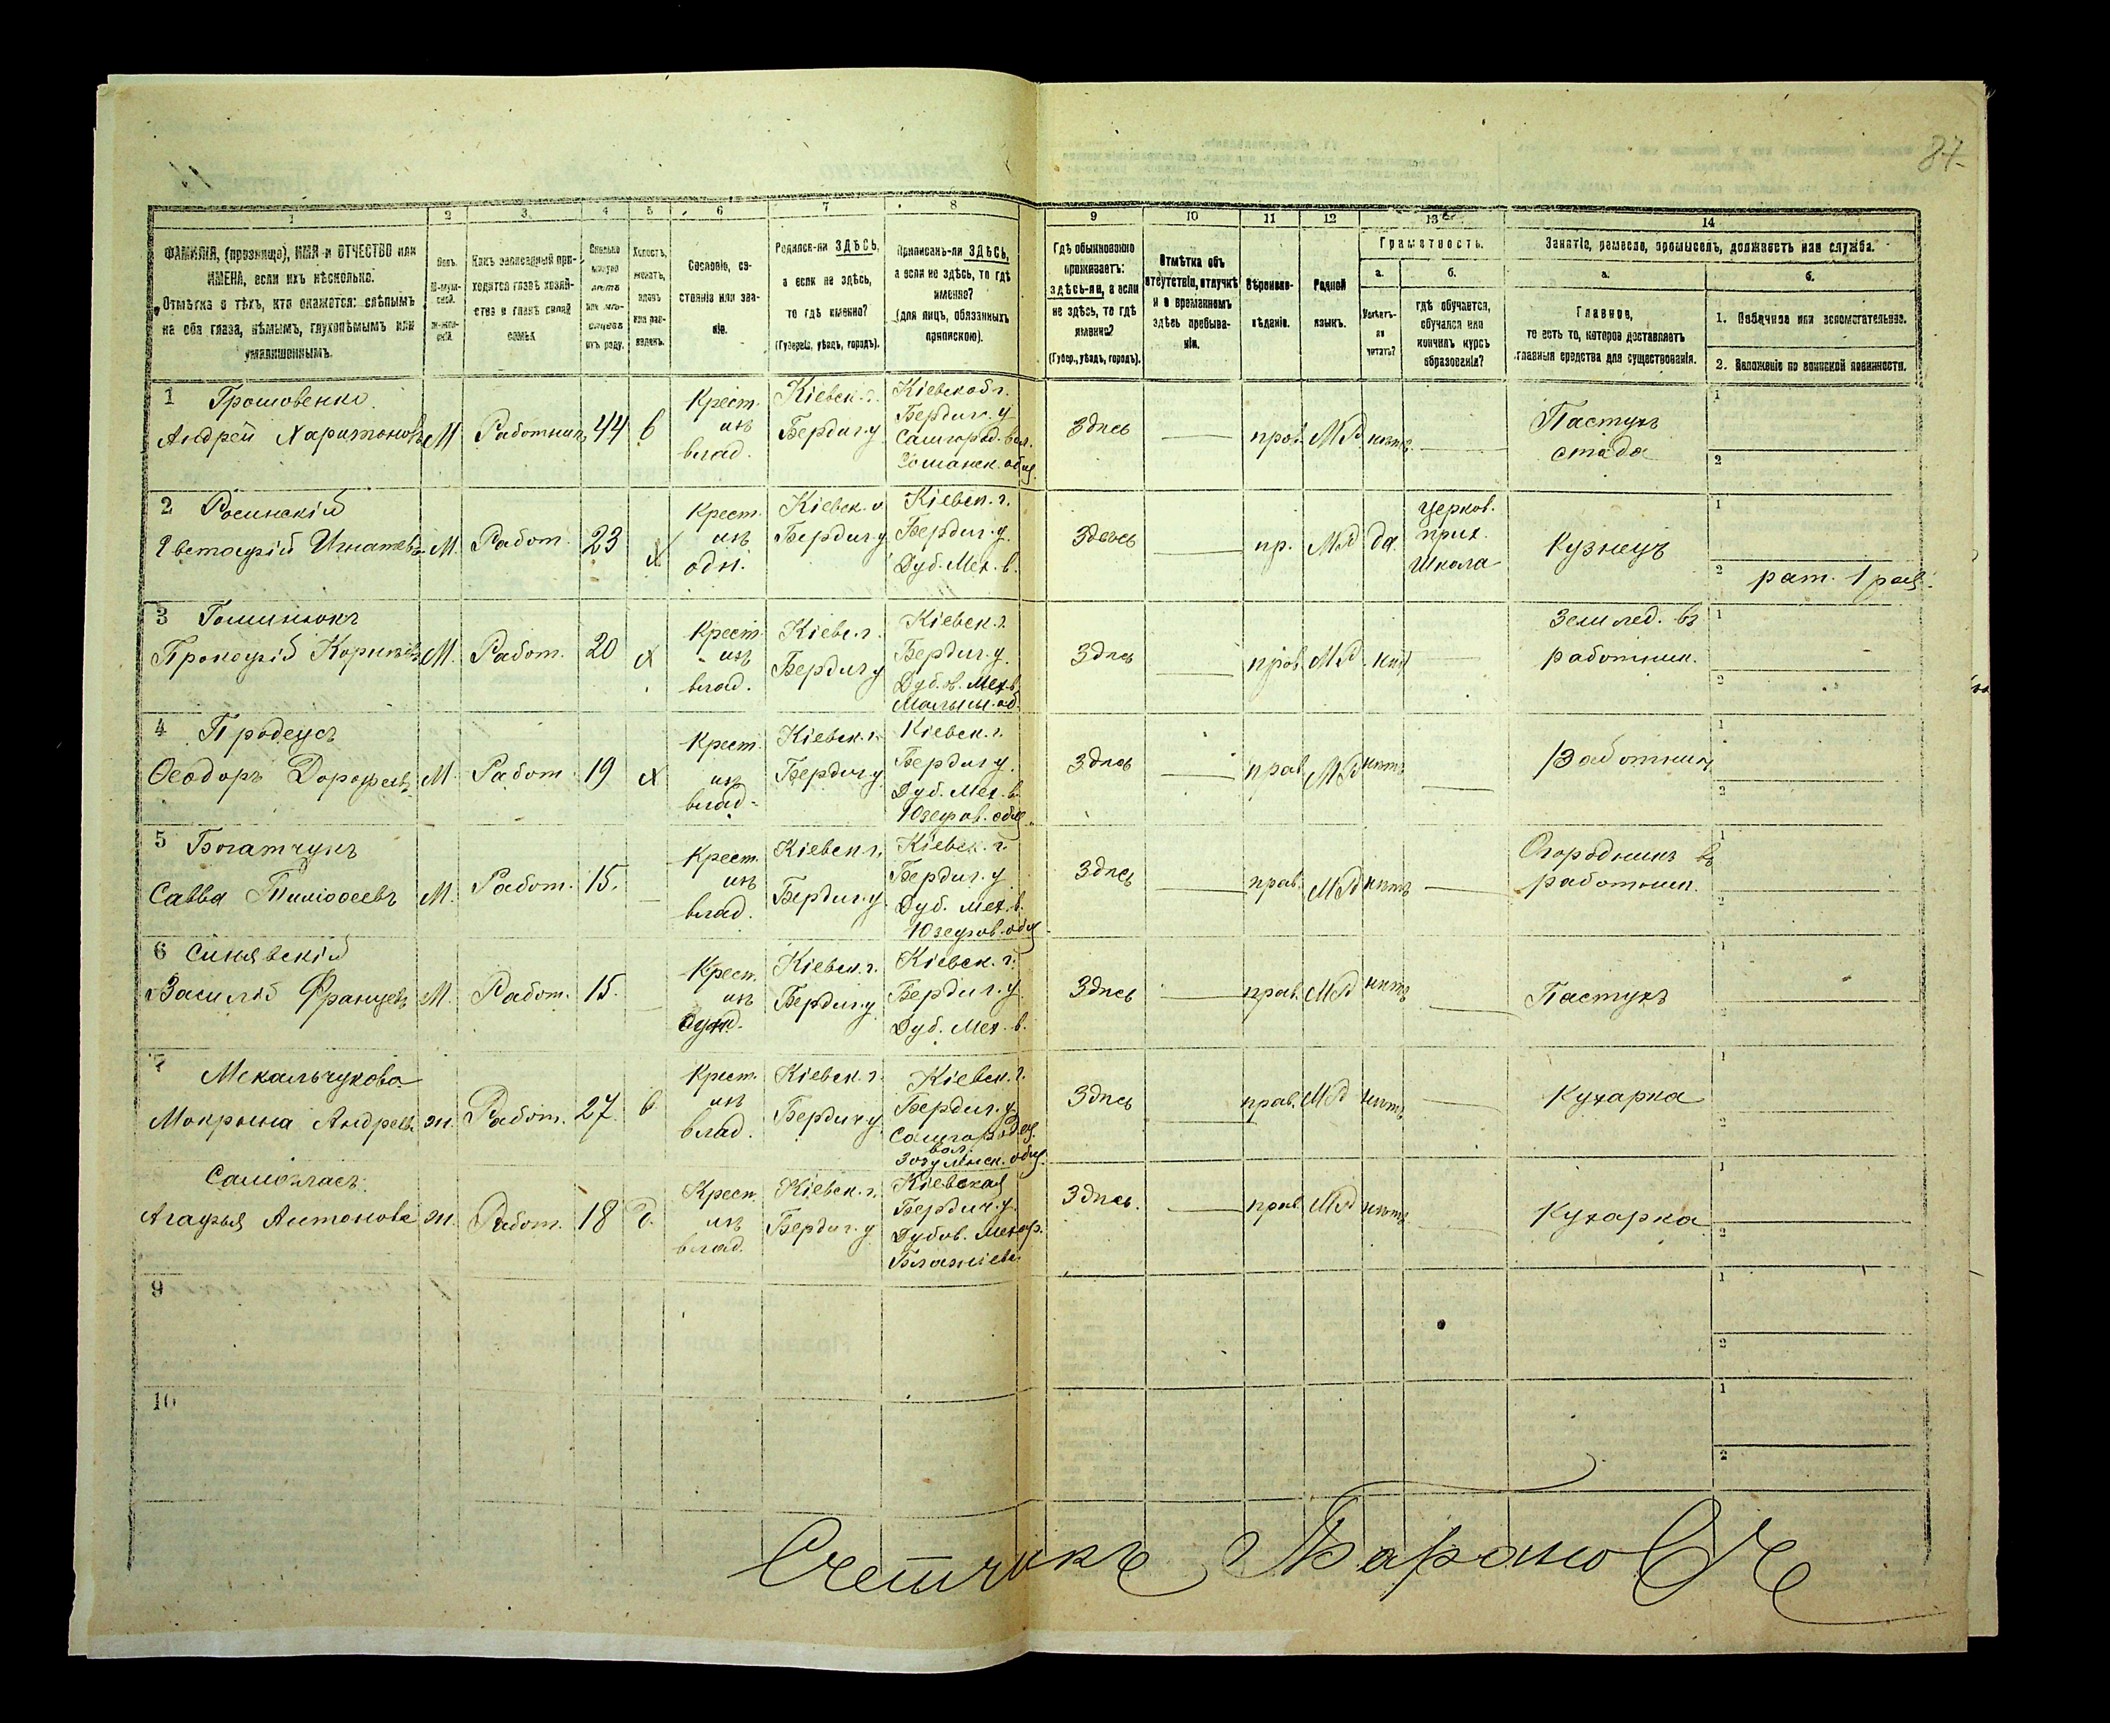 84
1 2 3 4 5 6 7 8 9 10 11 12 13 14
ФАМИЛІЯ, (прозвище), ИМЯ и ОТЧЕСТВО или
ИМЕНА, если ихъ нѣсколько.
Отмѣтка о тѣхъ, кто окажется: слѣпымъ
на оба глаза, нѣмымъ, глухонѣмымъ или
умалишеннымъ.
Полъ.
М-муж-
ской.
Ж-жен-
скій.
Какъ записанный при-
ходится главѣ хозяй-
ства и главѣ своей
семьи.
Сколько
минуло
лѣтъ
или мѣ-
сяцевъ
отъ роду.
Холостъ,
женатъ,
вдовъ
или раз-
веденъ.
Сословіе, со-
стояніе или зва-
ніе.
Родился-ли ЗДѢСЬ,
а если не здѣсь,
то гдѣ именно?
(Губернія, уѣздъ, городъ).
Приписанъ-ли ЗДѢСЬ,
а если не здѣсь, то гдѣ
именно?
(для лицъ, обязанныхъ
припискою).
Гдѣ обыкновенно
проживаетъ:
здѣсь-ли, а если
не здѣсь, то гдѣ
именно?
(Губер., уѣздъ, городъ).
Отмѣтка объ
отсутствіи, отлучкѣ
и о временномъ
здѣсь пребыва-
ніи.
Вѣроиспо-
вѣданіе.
Родной
языкъ.
Грамотность.
а.
Умѣетъ-
ли
читать?
б.
гдѣ обучается,
обучался или
кончилъ курсъ
образованія?
Занятіе, ремесло, промыселъ, должность или служба.
а.
Главное,
то есть то, которое доставляетъ
главныя средства для существованія.
б.
1. Побочное или вспомогательное.
2. Положеніе по воинской повинности.
1 Грошовенко
Андрей Харитоновъ М Работникъ 44 в
Крест. изъ влад.
Кіевск. г. Бердич. у
Кіевской г. Бердич. у Самгород. вол.
Здѣсь прав. нѣтъ
Пастухъ стада
1
2
2 Росинскій
Игнатьев. М. Работ. 23 х
Крест. изъ одн.
Кіевск. г. Бердич. у
Кіевск. г. Бердич. у. Дуб. Мех. в.
Здесь пр. да
церков. прих. школа
Кузнецъ
1
2 рат. 1 раз.
3
Прокофій М. Работ. 20 х
Крест. изъ влад.
Кіевс. г. Бердич у
Кіевск. г. Бердич. у. Дуб. в. Мех. в.
Здѣсь прав.
Землед. въ
работник.
1
2
4 Продеусъ
Ѳеодоръ Дорофеев. М. Работ. 19 х
Крест. изъ влад.
Кіевск. г. Бердич. у
Кіевск. г. Бердич у. Дуб. Мех. в. Юзефов. общ.
Здѣсь прав нѣтъ
Работник
1
2
5 Богатчукъ
Савва Тимоѳеевъ М. Работ. 15.
Крест. изъ влад.
Кіевск г. Бердич. у.
Кіевск. г. Бердич. у Дуб. Мех. в. Юзефов. общ
Здѣсь прав. нѣтъ
Огородникъ въ
работник.
1
2
6 Синявскій
Василій Францев. М. Работ. 15.
Крест. изъ
Кіевск. г. Бердич. у
Кіевск. г. Бердич. у. Дуб. Мех. в.
Здѣсь прав. нѣтъ
Пастухъ
1
2
7 Мекальчукова
Мокрына Андреев. ж. Работ. 27 в
Крест. изъ влад.
Кіевск. г. Бердич у
Кіевск. г. Бердич. у.
Здѣсь прав. нѣтъ
Кухарка
1
2
Самогласъ
Агафья Антонова ж. Работ. 18 д.
Крест. изъ влад.
Кіевск. г. Бердич. у
Кіевская Бердич. у. Дубов. Мехар.
Здѣсь. прав. нѣтъ
Кухарка
1
2
9
1
2
10
1
2
Счетчикъ